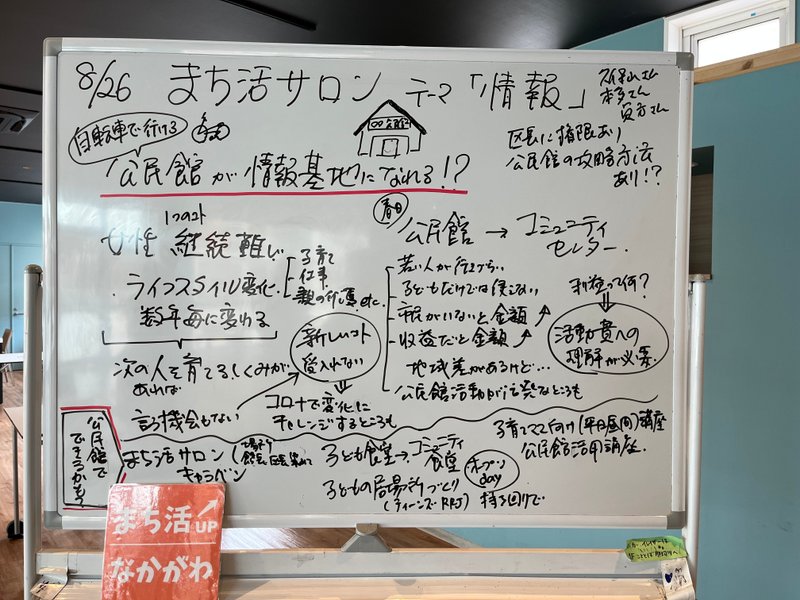 8/26 まち活サロン テーマ「情報」
久保山さん
本多さん
貞方さん
自転車で行ける
公民館
区長に権限あり
公民館の攻略方法
あり!?
公民館が情報基地になれる!?
女性 継続難しい
ライフスタイル変化
数年毎に変わる
子育て
仕事
親の介護 etc.
次の人を育てるしくみが
あれば
話す機会もない
新しいコト
受入れない
コロナで変化に
チャレンジするところも
春日
公民館 → コミュニティ
センター
若い人が行きづらい
子どもだけでは使えない
税がいないと金額↑
収益だと金額↑
地域差があるけど…
公民館活動が活発なところも
利益って何?
活動費への
理解が必要
公民館で
できるかも?
まち活サロン
キャラバン
子ども食堂→コミュニティ
食堂
子どもの居場所づくり
オープン
day
持ち回りで
子育てママ向け(平日昼間)講座
公民館活用講座
まち活UP
なかがわ